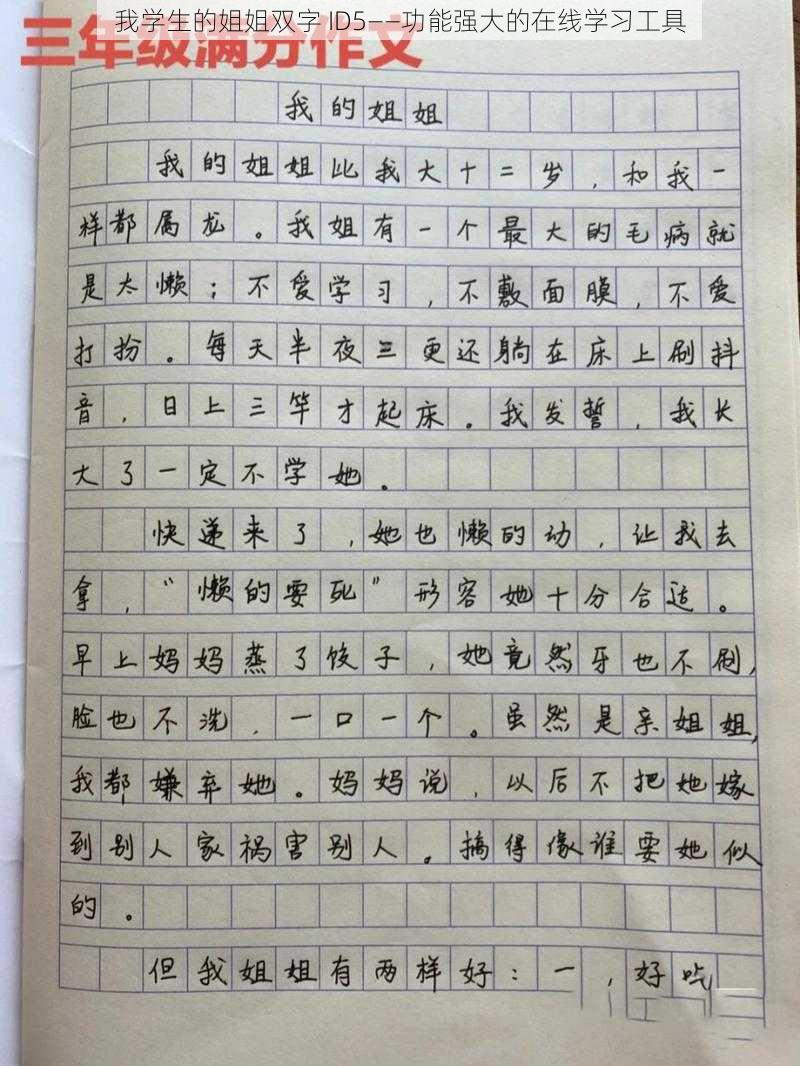 我学生的姐姐双字 ID5——功能强大的在线学习工具
三年级满分作文
我的姐姐
我的姐姐比我大十二岁，和我一
样都属龙。我姐有一个最大的毛病就
是太懒；不爱学习，不敷面膜，不爱
打扮。每天半夜三更还躺在床上刷抖
音，日上三竿才起床。我发誓，我长
大了一定不学她。
快递来了，她也懒的动，让我去
拿，“懒的要死”形容她十分合适。
早上妈妈蒸了饺子，她竟然牙也不刷，
脸也不洗，一口一个。虽然是亲姐姐，
我都嫌弃她。妈妈说，以后不把她嫁
到别人家祸害别人。搞得像谁要她似
的。
但我姐姐有两样好：一，好吃